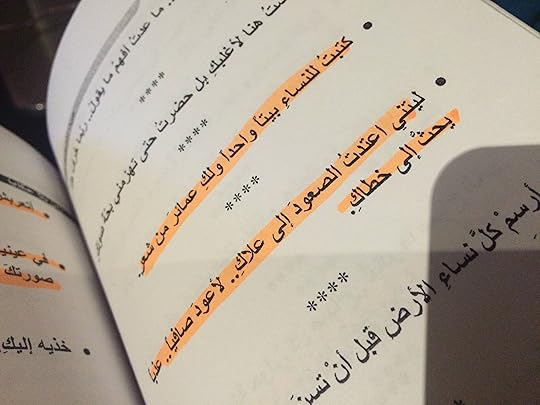 ما عدتُ أفهمُ ما يقول..
هنا لأغلبكِ بل حضرتُ حتى تهزمني
****
****
• كتبتُ للنساءِ بيتاً واحداً ولكِ عمائرَ من شعر.
****
• ليتني اعتدتُ الصعودَ إلى علاكِ.. لأعودَ صافياً..
إلى خطاكِ.
****
أرسمْ كلَّ نساءِ الأرضِ قبل أنْ
في
صورتكَ
• خذيه إليكِ